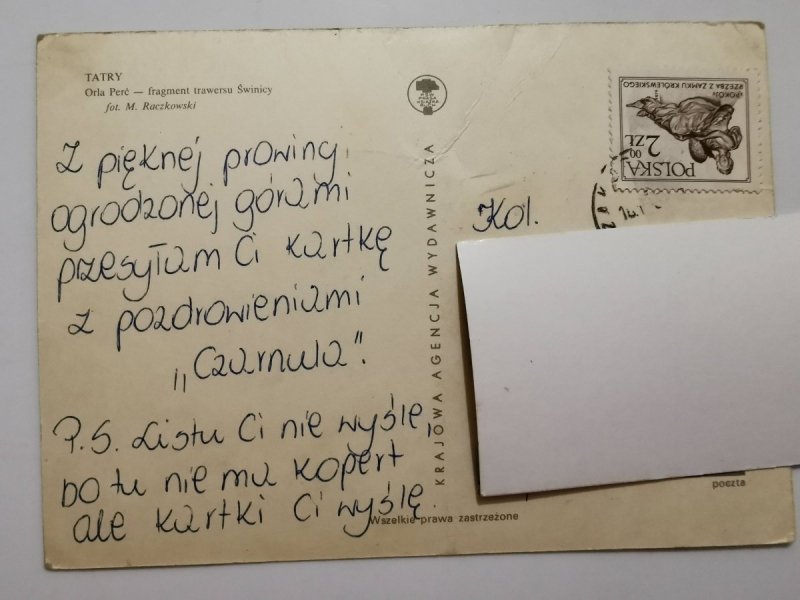 TATRY
Orla Perć — fragment trawersu Świnicy
fot. M. Raczkowski
Z pięknej prowincj
ogrodzonej górami
przesyłam Ci kartkę
z pozdrowieniami
„Czarnula".
P.S. Listu Ci nie wyślę,
bo tu nie ma kopert
ale kartki Ci wyślę.
KRAJOWA AGENCJA WYDAWNICZA
Kol.
POLSKA
2 00 ZŁ
„POKÓJ"
RZEŹBA Z ZAMKU KRÓLEWSKIEGO
poczta
Wszelkie prawa zastrzeżone